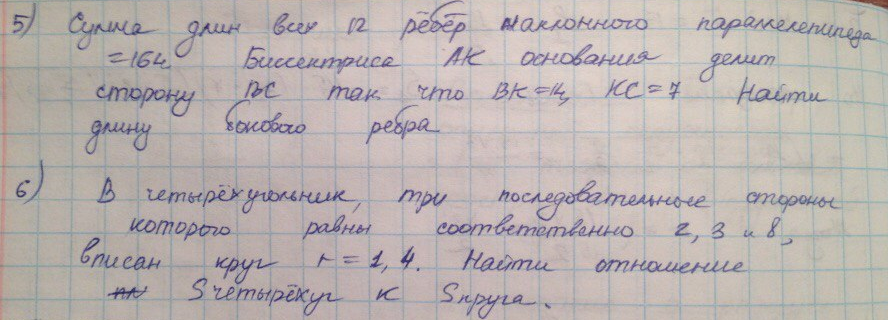 5) Сумма длин всех 12 рёбер наклонного параллелепипеда
=164 Биссектриса АК основания делит
сторону ВС так что ВК=14, КС=7 Найти
длину бокового ребра
6) В четырёхугольник, три последовательные стороны
которого равны соответственно 2, 3 и 8,
вписан круг r=1,4. Найти отношение
S четырёхуг к S круга.